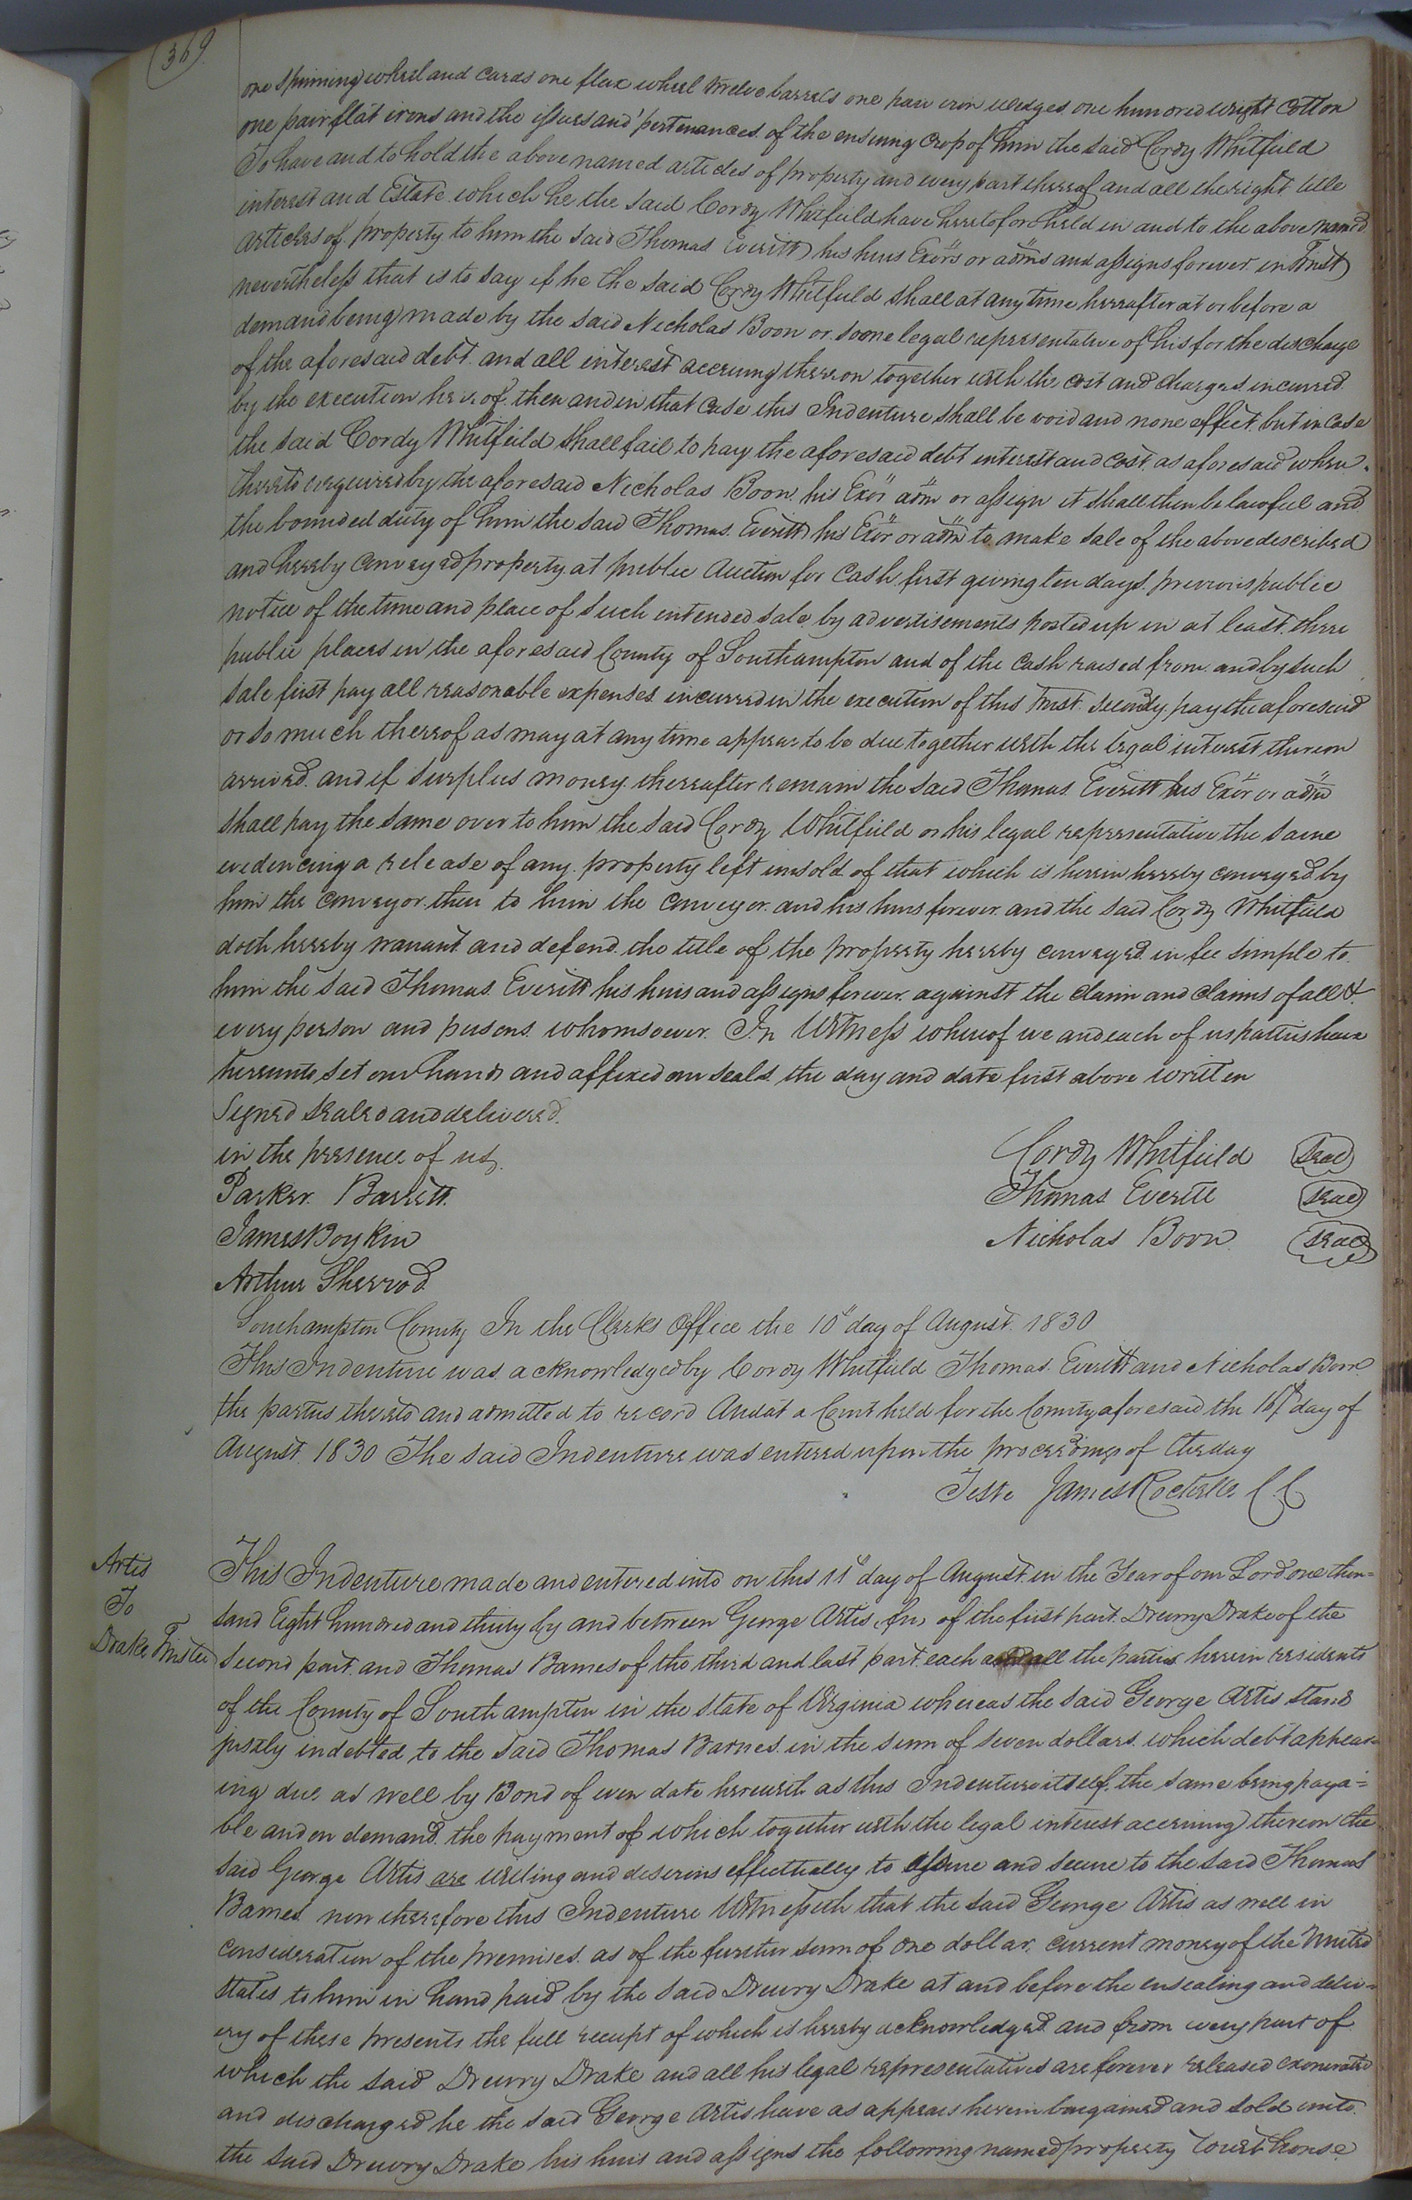 369
one spinning wheel and cards one flax wheel twelve barrels one pair iron wedges one hundred weight cotton
one pair flat irons and the issues and 'pertenances of the ensuing crop of him the said Cordy Whitfield
To have and to hold the above named articles of property and every part thereof and all the right title
interest and Estate which he the said Cordy Whitfield have heretofore held in and to the above named
articles of property to him the said Thomas Everitt his heirs Exōrs or adm̄s and assigns forever in Trust
nevertheless that is to say if he the said Cordy Whitfield shall at any time hereafter at or before a
demand being made by the said Nicholas Boon or some legal representative of his for the discharge
of the aforesaid debt and all interest accruing thereon together with the cost and charges incurred
by the execution hereof then and in that case this Indenture shall be void and none effect but in case
the said Cordy Whitfield shall fail to pay the aforesaid debt interest and cost as aforesaid when
thereto required by the aforesaid Nicholas Boon his Exōr adm̄ or assign it shall then be lawful and
the bounded duty of him the said Thomas Everitt his Exōr or adm̄ to make sale of the above described
and hereby conveyed property at public Auction for Cash first giving ten days previous public
notice of the time and place of such intended sale by advertisements posted up in at least three
public places in the aforesaid County of Southampton and of the cash raised from and by such
sale first pay all reasonable expenses incurred in the execution of this Trust secondly pay the aforesaid
or so much thereof as may at any time appear to be due together with the legal interest thereon
arrived and if surplus money thereafter remain the said Thomas Everitt his Exōr or adm̄
shall pay the same over to him the said Cordy Whitfield or his legal representative the same
evidencing a release of any property left unsold of that which is herein hereby conveyed by
him the conveyor then to him the conveyor and his heirs forever and the said Cordy Whitfield
doth hereby warrant and defend the title of the property hereby conveyed in fee simple to
him the said Thomas Everitt his heirs and assigns forever against the claim and claims of all &
every person and persons whomsoever. In Witness whereof we and each of us parties have
hereunto set our hands and affixed our seals the day and date first above written
Signed sealed and delivered
in the presence of us
Cordy Whitfield Seal
Parker Barrett
Thomas Everitt Seal
James Boykin
Nicholas Boon Seal
Arthur Sherrod
Southampton County In the Clerks Office the 10th day of August 1830
This Indenture was acknowledged by Cordy Whitfield Thomas Everitt and Nicholas Boon
the parties thereto and admitted to record And at a Court held for the County aforesaid the 16th day of
August 1830 The said Indenture was entered upon the proceedings of the day
Teste James Rochelle C. C.
Artis
To
Drake Trustee
This Indenture made and entered into on this 11th day of August in the Year of our Lord one thou=
sand Eight hundred and thirty by and between George Artis of the first part Drewry Drake of the
second part and Thomas Barnes of the third and last part each and all the parties herein residents
of the County of Southampton in the state of Virginia whereas the said George Artis stand
justly indebted to the said Thomas Barnes in the sum of seven dollars which debt appear=
ing due as well by Bond of even date herewith as this Indenture itself the same being paya=
ble and on demand the payment of which together with the legal interest accruing thereon the
said George Artis are willing and desirous effectually to assure and secure to the said Thomas
Barnes now therefore this Indenture Witnesseth that the said George Artis as well in
consideration of the premises as of the further sum of one dollar current money of the United
States to him in hand paid by the said Drewry Drake at and before the ensealing and deliv=
ery of these presents the full receipt of which is hereby acknowledged and from every part of
which the said Drewry Drake and all his legal representatives are forever released exonerated
and discharged he the said George Artis have as appears herein bargained and sold unto
the said Drewry Drake his heirs and assigns the following named property to wit house